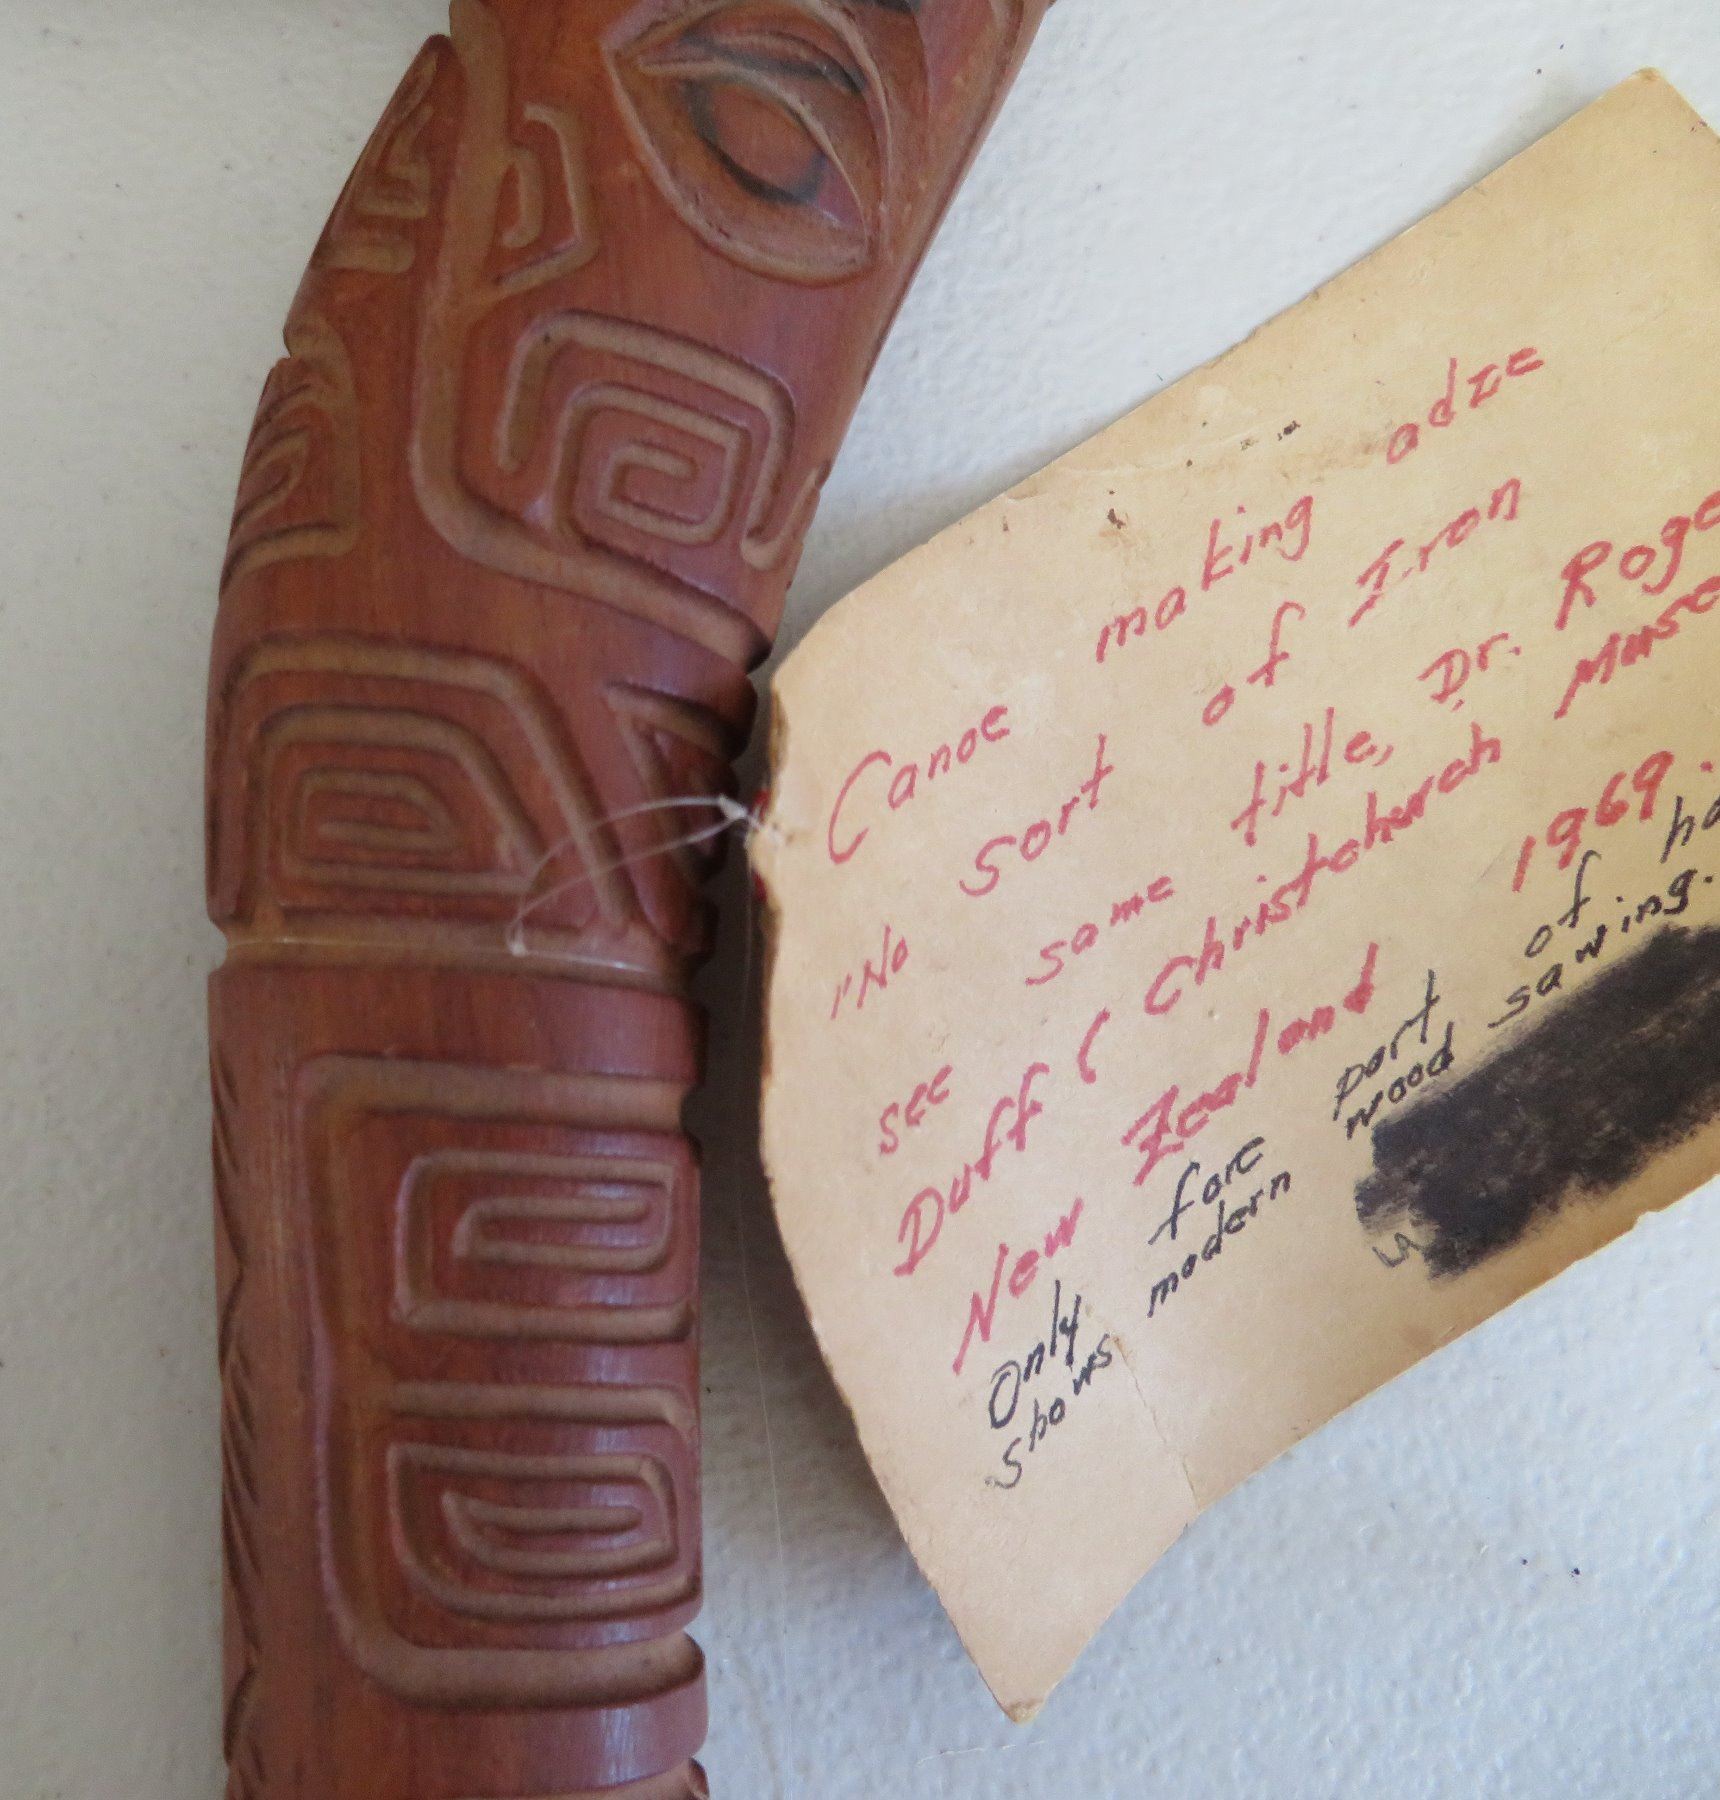 Canoe making adze
"No sort of Iron
see same title, Dr. Roge
Duff (Christchurch Muse
New Zealand 1969.
Only fore port of ha
shows modern wood sawing.